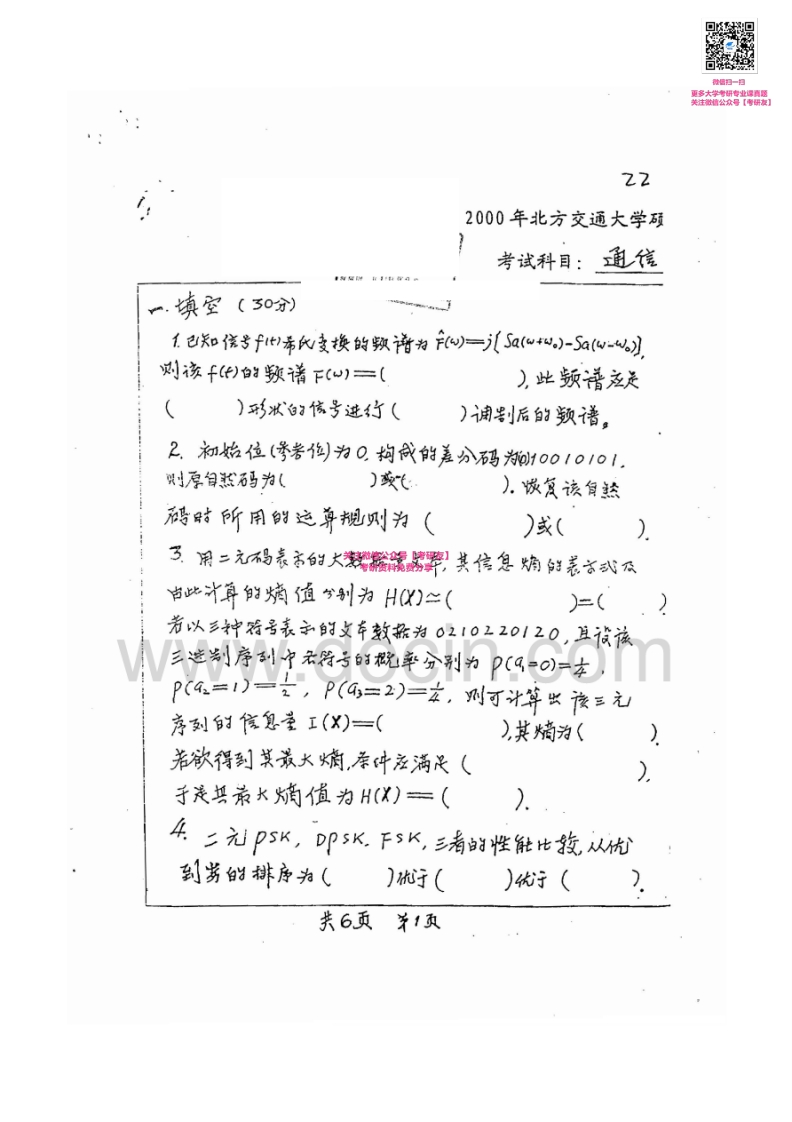 微信扫一扫
更多大学考研专业课真题
关注微信公众号【考研友】
22
2000年北方交通大学硕
考试科目: 通信
一.填空 (30分)
1.已知信号f(t)希氏变换的频谱为F̂(ω)=j[Sa(ω+ω₀)-Sa(ω-ω₀)],
则该f(t)的频谱F(ω)=( ),此频谱应是
( )形状的信号进行( )调制后的频谱。
2. 初始位(参考位)为0,构成的差分码为010010101,
则原自然码为( )或( ).恢复该自然
码时所用的运算规则为( )或( ).
3. 用二元码表示的大 其信息熵的表示式及
关注微信公众号【考研友】
考研资料免费分享
由此计算的熵值分别为 H(X)≃( )=( )
若以三种符号表示的文本数据为0210220120,且设该
三进制序列中各符号的概率分别为 P(a₁=0)=1/4,
P(a₂=1)=1/2, P(a₃=2)=1/4, 则可计算出该三元
序列的信息量 I(X)=( ),其熵为( ).
若欲得到其最大熵,条件应满足( ).
于是其最大熵值为H(X)=( ).
4. 二元PSK, DPSK. FSK,三者的性能比较,从优
到劣的排序为( )优于( )优于( ).
共6页 第1页
www.docin.com